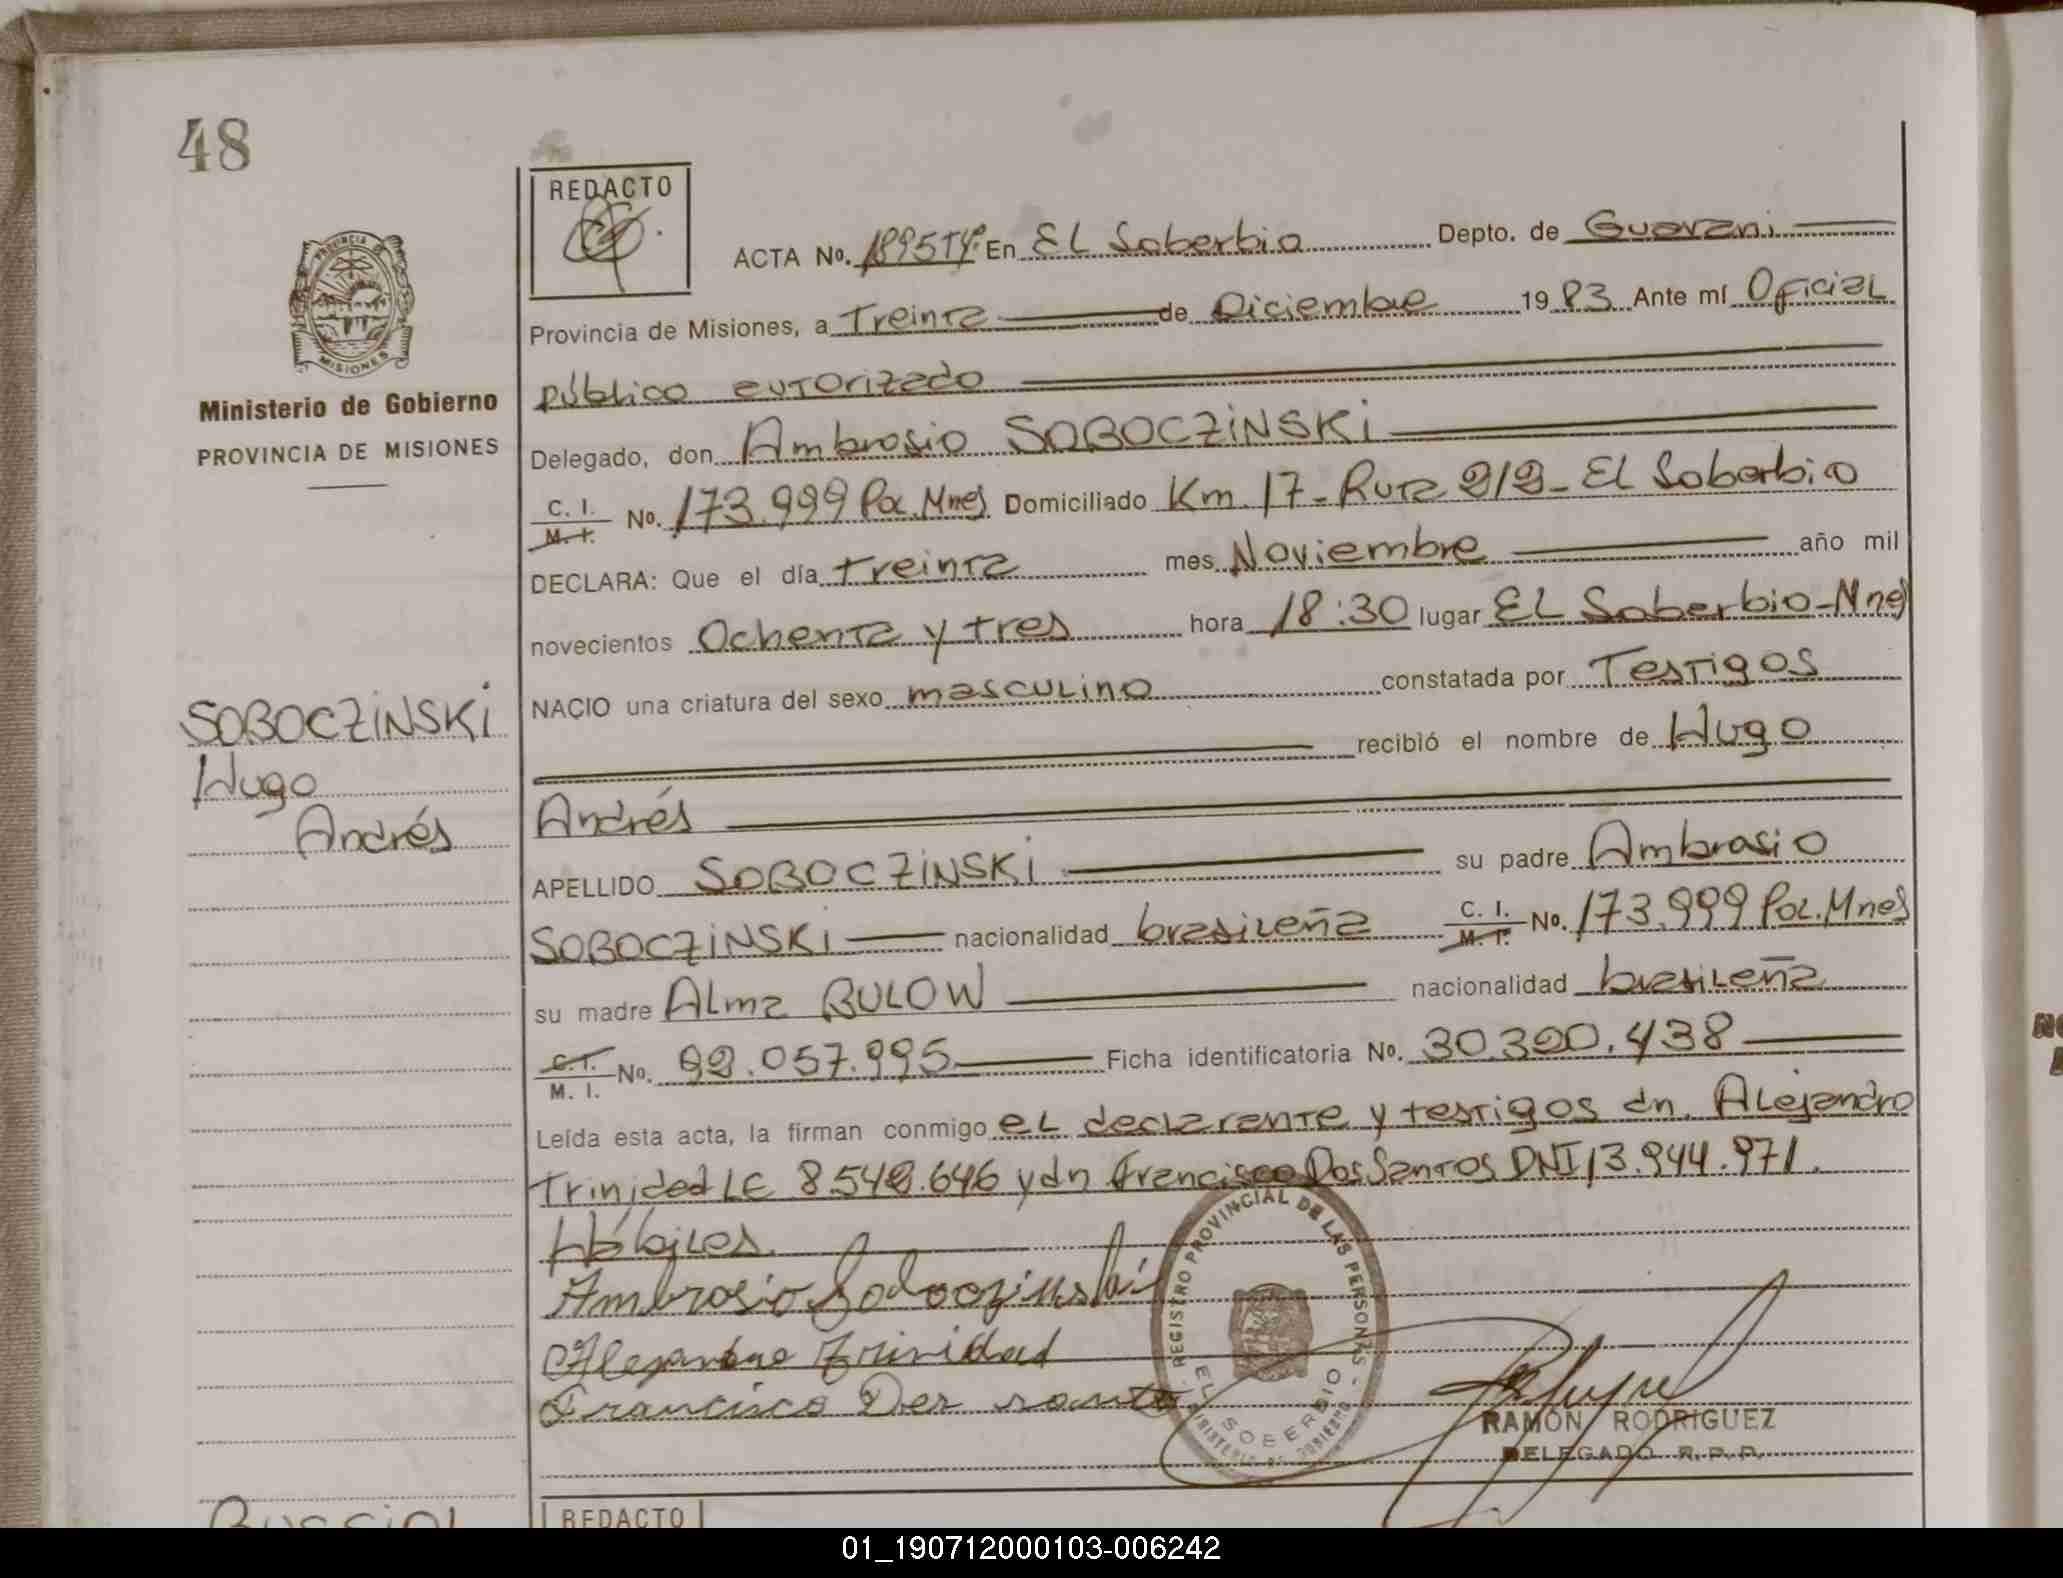 48
REDACTO
ACTA No. 1895Tº4º En El Soberbio Depto. de Guarani
Provincia de Misiones, a Treinta de Diciembre 1983 Ante mí Oficial
público autorizado
PROVINCIA DE
MISIONES
Ministerio de Gobierno
PROVINCIA DE MISIONES
Delegado, don Ambrosio SOBOCZiNSKi
C. I. M. I. No. 173.999 Pol. Mnes Domiciliado Km. 17 - Ruta 212 - El Soberbio
DECLARA: Que el día treinta mes Noviembre año mil
novecientos Ochenta y tres hora 18:30 lugar El Soberbio-Mnes
NACIO una criatura del sexo masculino constatada por Testigos
recibió el nombre de Hugo
Andrés
SOBOCZiNSKi
Hugo
Andrés
APELLIDO SOBOCZiNSKi su padre Ambrosio
SOBOCZiNSKi nacionalidad brasileña C. I. M. I. No. 173.999 Pol. Mnes
su madre Alma BULOW nacionalidad brasileña
C. I. M. I. No. 92.057.995 Ficha identificatoria No. 30.320.438
Leída esta acta, la firman conmigo el declarante y testigos dn. Alejandro
Trinidad LE 8.542.646 y dn Francisco Dos Santos DNI 13.944.971.
Hábiles.
Ambrosio Soboczinski
Alejandro Trinidad
Francisco Dos santo
REGISTRO PROVINCIAL DE LAS PERSONAS
EL SOBERBIO
MINISTERIO DE GOBIERNO
RAMON RODRIGUEZ
DELEGADO R.P.P.
REDACTO
01_190712000103-006242